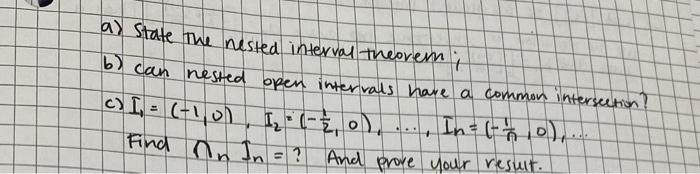 a) State the nested interval theorem;
b) can nested open intervals have a common intersection?
c) I₁ = (-1,0), I₂ = (-1/2, 0), ..., Iₙ = (-1/n, 0), ...
Find ∩ₙ Iₙ = ? And prove your result.